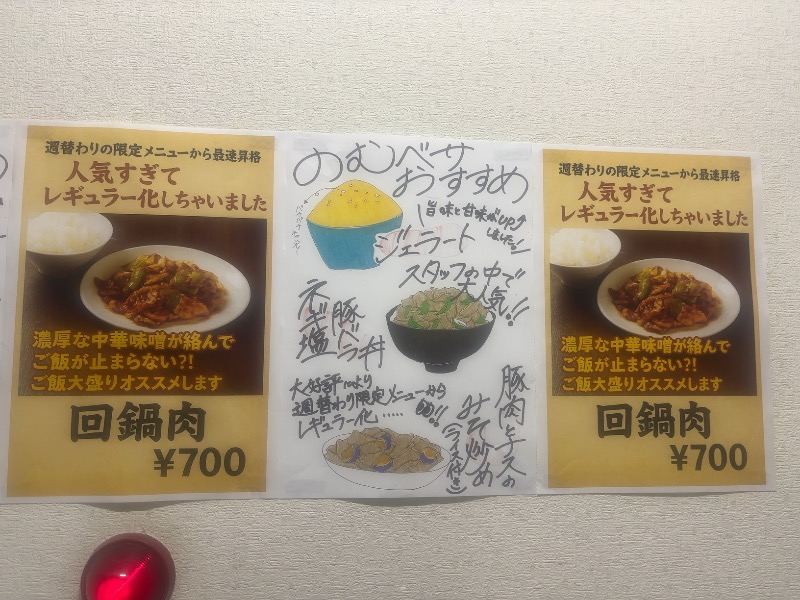 週替わりの限定メニューから最速昇格
人気すぎて
レギュラー化しちゃいました
濃厚な中華味噌が絡んで
ご飯が止まらない?!
ご飯大盛りオススメします
回鍋肉
¥700
のむベサ
おすすめ
旨味と甘味がUP↑
しました!!
ジェラート
スタッフの中で
大人気!!
ネギ塩
豚バラ丼
大好評により
週替わり限定メニューから
レギュラー化.....
豚肉とナスの
みそ炒め
(ライス付き)
週替わりの限定メニューから最速昇格
人気すぎて
レギュラー化しちゃいました
濃厚な中華味噌が絡んで
ご飯が止まらない?!
ご飯大盛りオススメします
回鍋肉
¥700